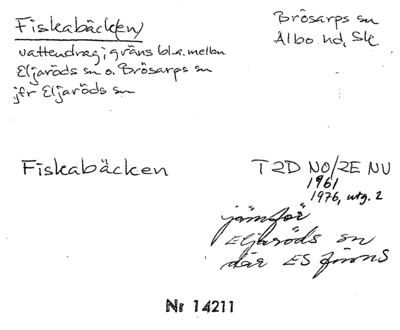 Fiskabäck(en)
Brösarps sn
Albo hd, Sk
vattendrag i gräns bl.a. mellan
Eljaröds sn o. Brösarps sn
jfr Eljaröds sn
Fiskabäcken
T2D NO/2E NV
1961
1976, utg. 2
jämför
Eljaröds sn
där ES finns
Nr 14211